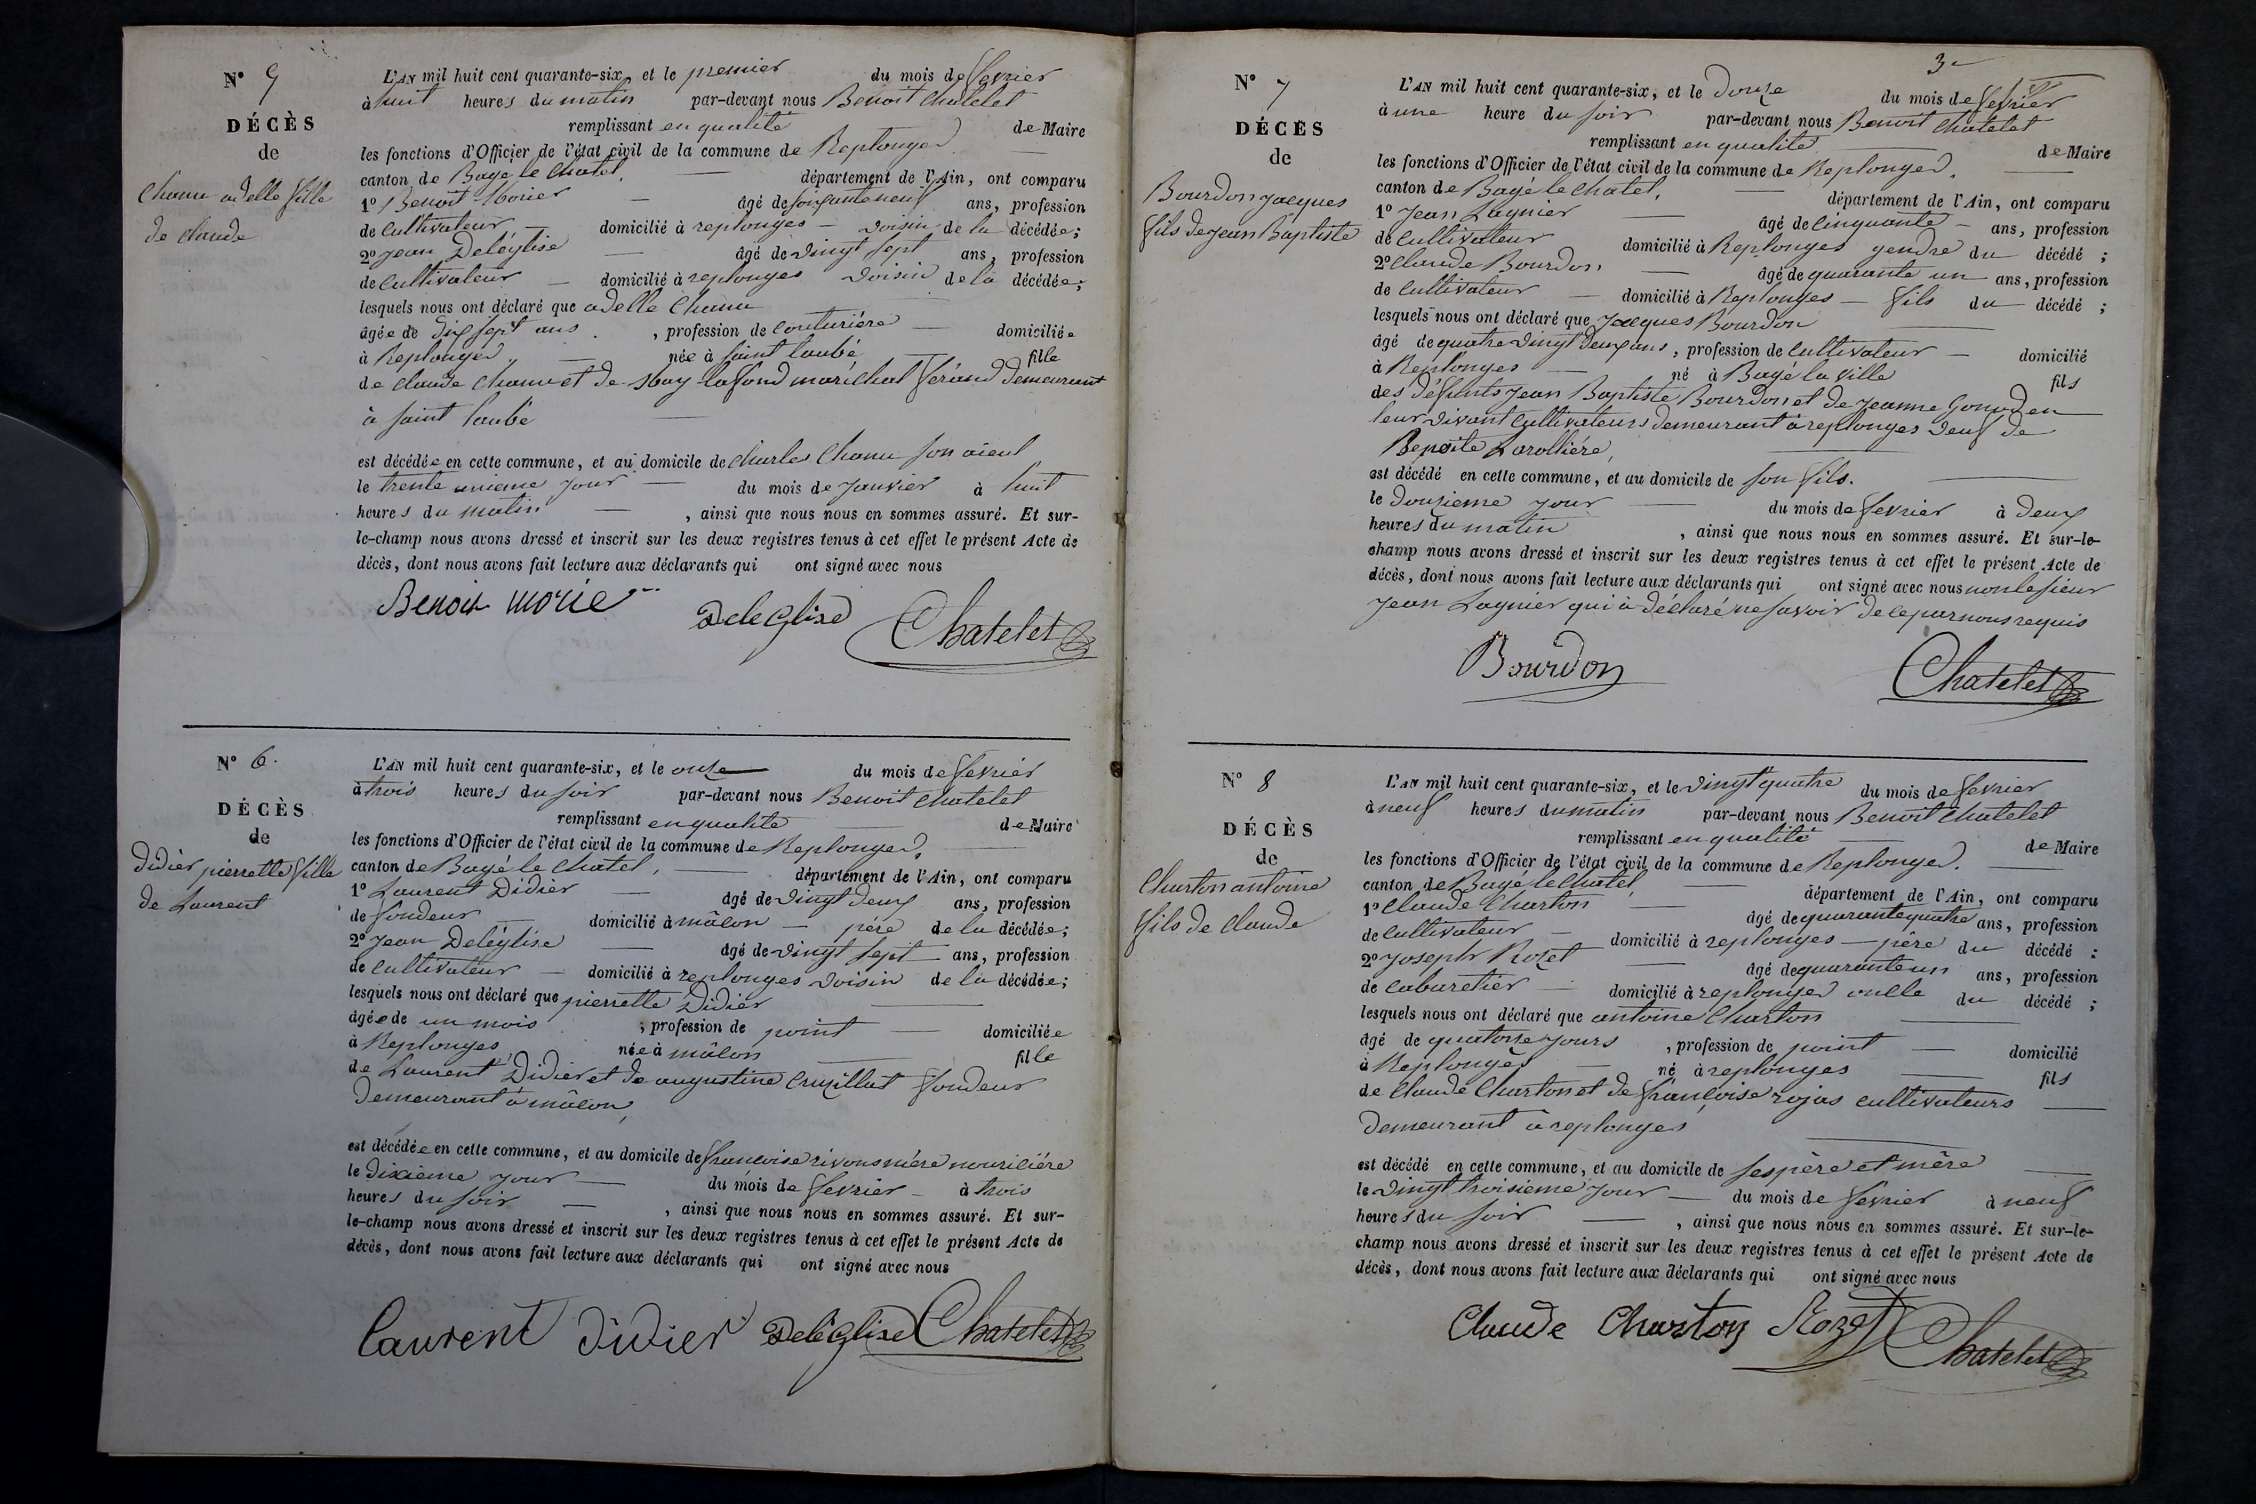 N° 5
DÉCÈS
de
Chanu adelle fille
de claude
L'AN mil huit cent quarante-six, et le premier du mois de fevrier
à huit heures du matin par-devant nous Benoit Chatelet
remplissant en qualité de Maire
les fonctions d'Officier de l'état civil de la commune de Replonges
canton de Bagé le Chatel, département de l'Ain, ont comparu
1° Benoit Morier âgé de soixante neuf ans, profession
de cultivateur domicilié à replonges voisin de la décédée;
2° Jean Deléglise âgé de vingt sept ans, profession
de cultivateur domicilié à replonges voisin de la décédée;
lesquels nous ont déclaré que adelle Chanu
âgée de dix sept ans, profession de couturière domiciliée
à Replonges, née à saint laubé fille
de claude Chanu et de lafond maréchal férand demeurant
à saint laubé
est décédée en cette commune, et au domicile de charles Chanu son aieul
le trente unieme jour du mois de Janvier à huit
heures du matin, ainsi que nous nous en sommes assuré. Et sur-
le-champ nous avons dressé et inscrit sur les deux registres tenus à cet effet le présent Acte de
décès, dont nous avons fait lecture aux déclarants qui ont signé avec nous
Benoit morie Deleglise Chatelet
N° 6.
DÉCÈS
de
Didier pierrette fille
de Laurent
L'AN mil huit cent quarante-six, et le onze du mois de fevrier
à trois heures du soir par-devant nous Benoit Chatelet
remplissant en qualité de Maire
les fonctions d'Officier de l'état civil de la commune de Replonges,
canton de Bagé le Chatel, département de l'Ain, ont comparu
1° Laurent Didier âgé de vingt deux ans, profession
de fondeur domicilié à mâcon père de la décédée;
2° Jean Deléglise âgé de vingt sept ans, profession
de cultivateur domicilié à replonges voisin de la décédée;
lesquels nous ont déclaré que pierrette Didier
âgée de un mois, profession de point domiciliée
à Replonges, née à mâcon fille
de Laurent Didier et de augustine Cruzillat fondeur
demeurant à mâcon,
est décédée en cette commune, et au domicile de francoise rivons mére nouriciére
le dixieme jour du mois de fevrier à trois
heures du soir, ainsi que nous nous en sommes assuré. Et sur-
le-champ nous avons dressé et inscrit sur les deux registres tenus à cet effet le présent Acte de
décès, dont nous avons fait lecture aux déclarants qui ont signé avec nous
Laurent Didier Deléglise Chatelet
3
N° 7
DÉCÈS
de
Bourdon jacques
fils de jean Baptiste
L'AN mil huit cent quarante-six, et le douze du mois de fevrier
à une heure du soir par-devant nous Benoit Chatelet
remplissant en qualité de Maire
les fonctions d'Officier de l'état civil de la commune de Replonges.
canton de Bagé le Chatel, département de l'Ain, ont comparu
1° Jean Lagnier âgé de cinquante ans, profession
de cultivateur domicilié à Replonges gendre du décédé;
2° Claude Bourdon âgé de quarante un ans, profession
de cultivateur domicilié à Replonges fils du décédé;
lesquels nous ont déclaré que Jacques Bourdon
âgé de quatre vingt deux ans, profession de cultivateur domicilié
à Replonges né à Bagé la ville fils
des défunts Jean Baptiste Bourdon et de Jeanne Gonod en
leur vivant cultivateurs demeurant à replonges veuf de
Benoite Larolliére,
est décédé en cette commune, et au domicile de son fils.
le douzieme jour du mois de fevrier à deux
heures du matin, ainsi que nous nous en sommes assuré. Et sur-le-
champ nous avons dressé et inscrit sur les deux registres tenus à cet effet le présent Acte de
décès, dont nous avons fait lecture aux déclarants qui ont signé avec nous non le sieur
Jean Lagnier qui à déclaré ne savoir de ce par nous requis
Bourdon Chatelet
N° 8
DÉCÈS
de
Charton antoine
fils de claude
L'AN mil huit cent quarante-six, et le vingt quatre du mois de fevrier
à neuf heures du matin par-devant nous Benoit Chatelet
remplissant en qualité de Maire
les fonctions d'Officier de l'état civil de la commune de Replonges.
canton de Bagé le Chatel, département de l'Ain, ont comparu
1° Claude Charton âgé de quarante quatre ans, profession
de cultivateur domicilié à replonges père du décédé;
2° Joseph Rozet âgé de quarante un ans, profession
de cabaretier domicilié à replonges oncle du décédé;
lesquels nous ont déclaré que antoine Charton
âgé de quatorze jours, profession de point domicilié
à Replonges né à replonges fils
de Claude Charton et de françoise rojas cultivateurs
demeurant à replonges
est décédé en cette commune, et au domicile de ses père et mère
le vingt troisieme jour du mois de fevrier à neuf
heures du soir, ainsi que nous nous en sommes assuré. Et sur-le-
champ nous avons dressé et inscrit sur les deux registres tenus à cet effet le présent Acte de
décès, dont nous avons fait lecture aux déclarants qui ont signé avec nous
Claude Charton Rozet Chatelet